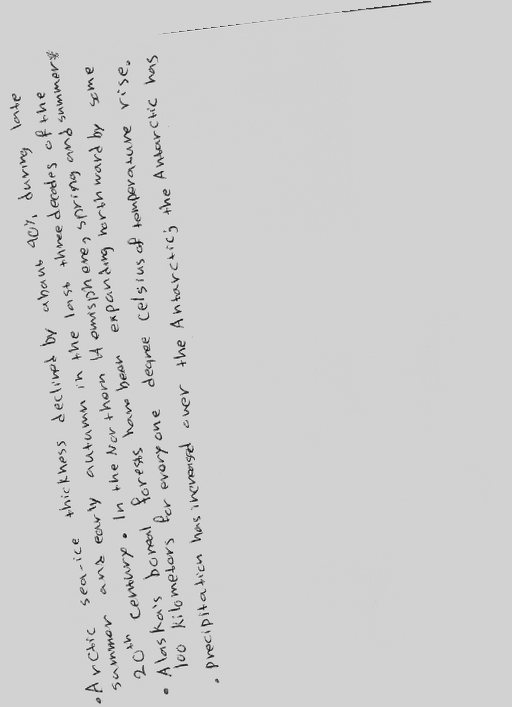 • Arctic sea-ice thickness declined by about 40%, during late
summer and early autumn in the last three decades of the
20th century. In the Northern Hemisphere, spring and summer
• Alaska's boreal forests have been expanding northward by some
100 kilometers for everyone degree celsius of temperature rise.
• precipitation has increased over the Antarctic; the Antarctic has